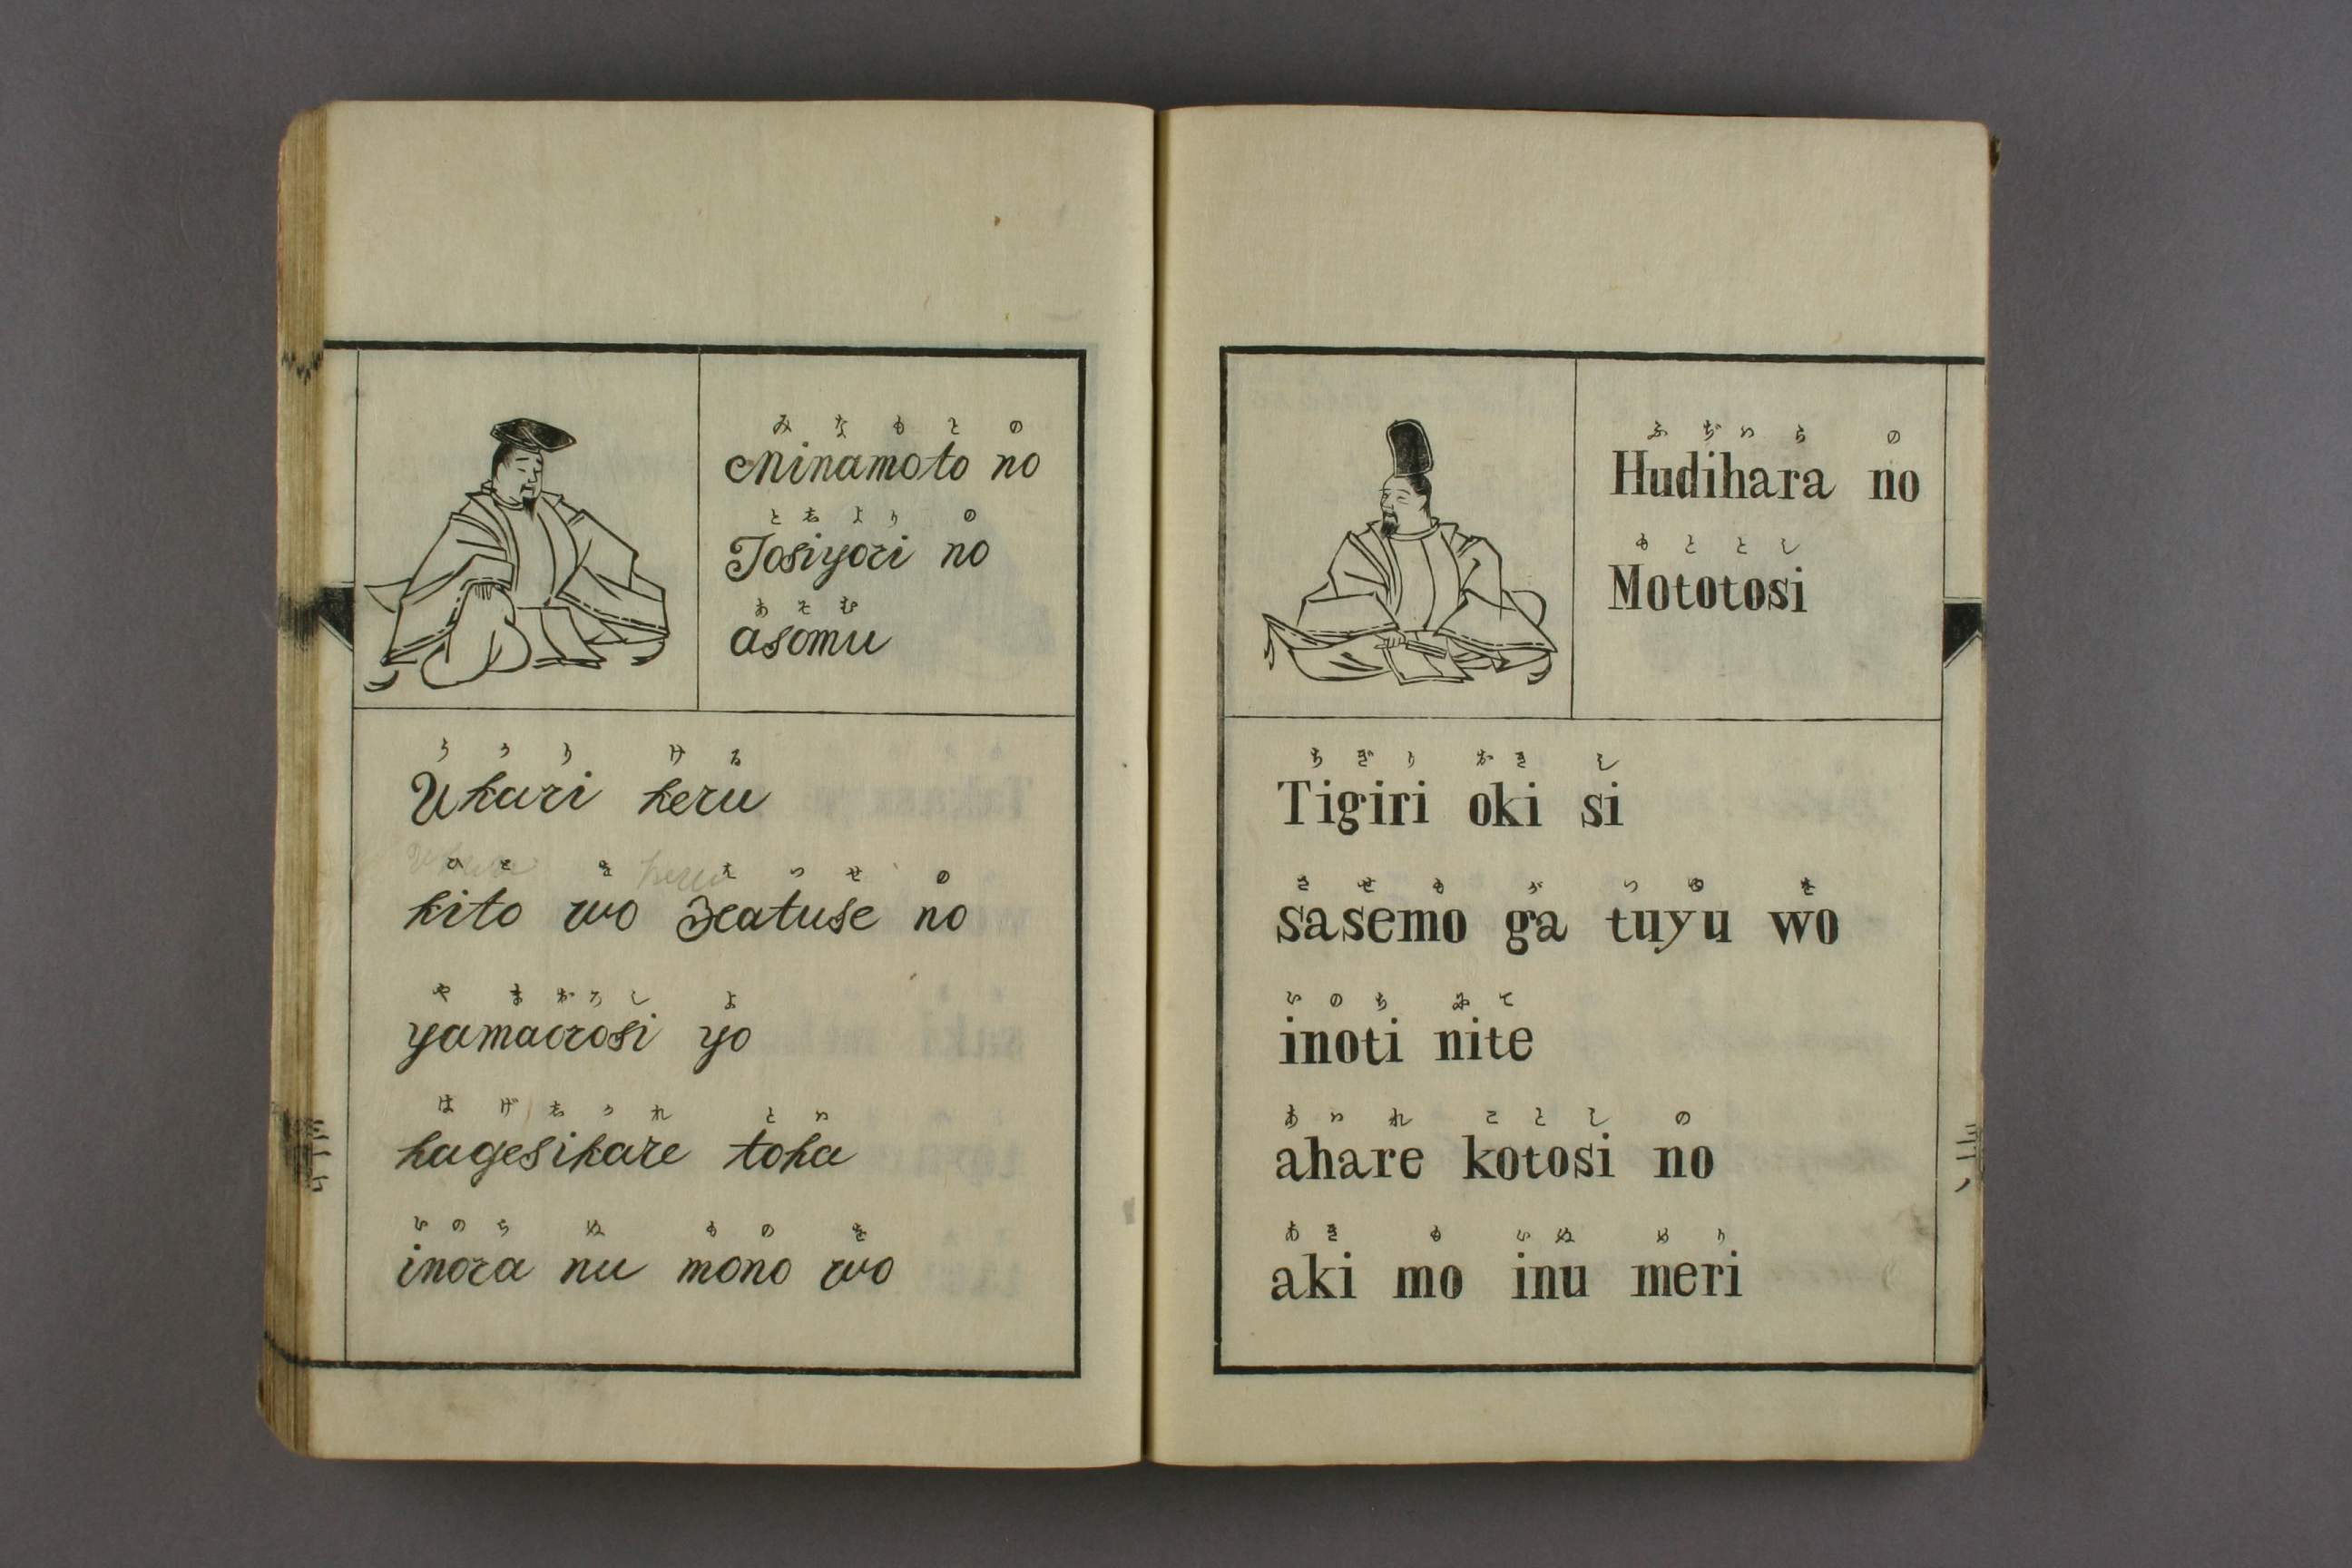 みなもと の
Minamoto no
としより の
Tosiyori no
あそむ
asomu
うかり ける
Ukari keru
ひと を はつせ の
hito wo Hatuse no
やまおろし よ
yamaorosi yo
はげしかれ とは
hagesikare toha
いのら ぬ もの を
inora nu mono wo
ふぢはら の
Hudihara no
もととし
Mototosi
ちぎり おき し
Tigiri oki si
させも が つゆ を
sasemo ga tuyu wo
いのち にて
inoti nite
あはれ ことし の
ahare kotosi no
あき も いぬ めり
aki mo inu meri